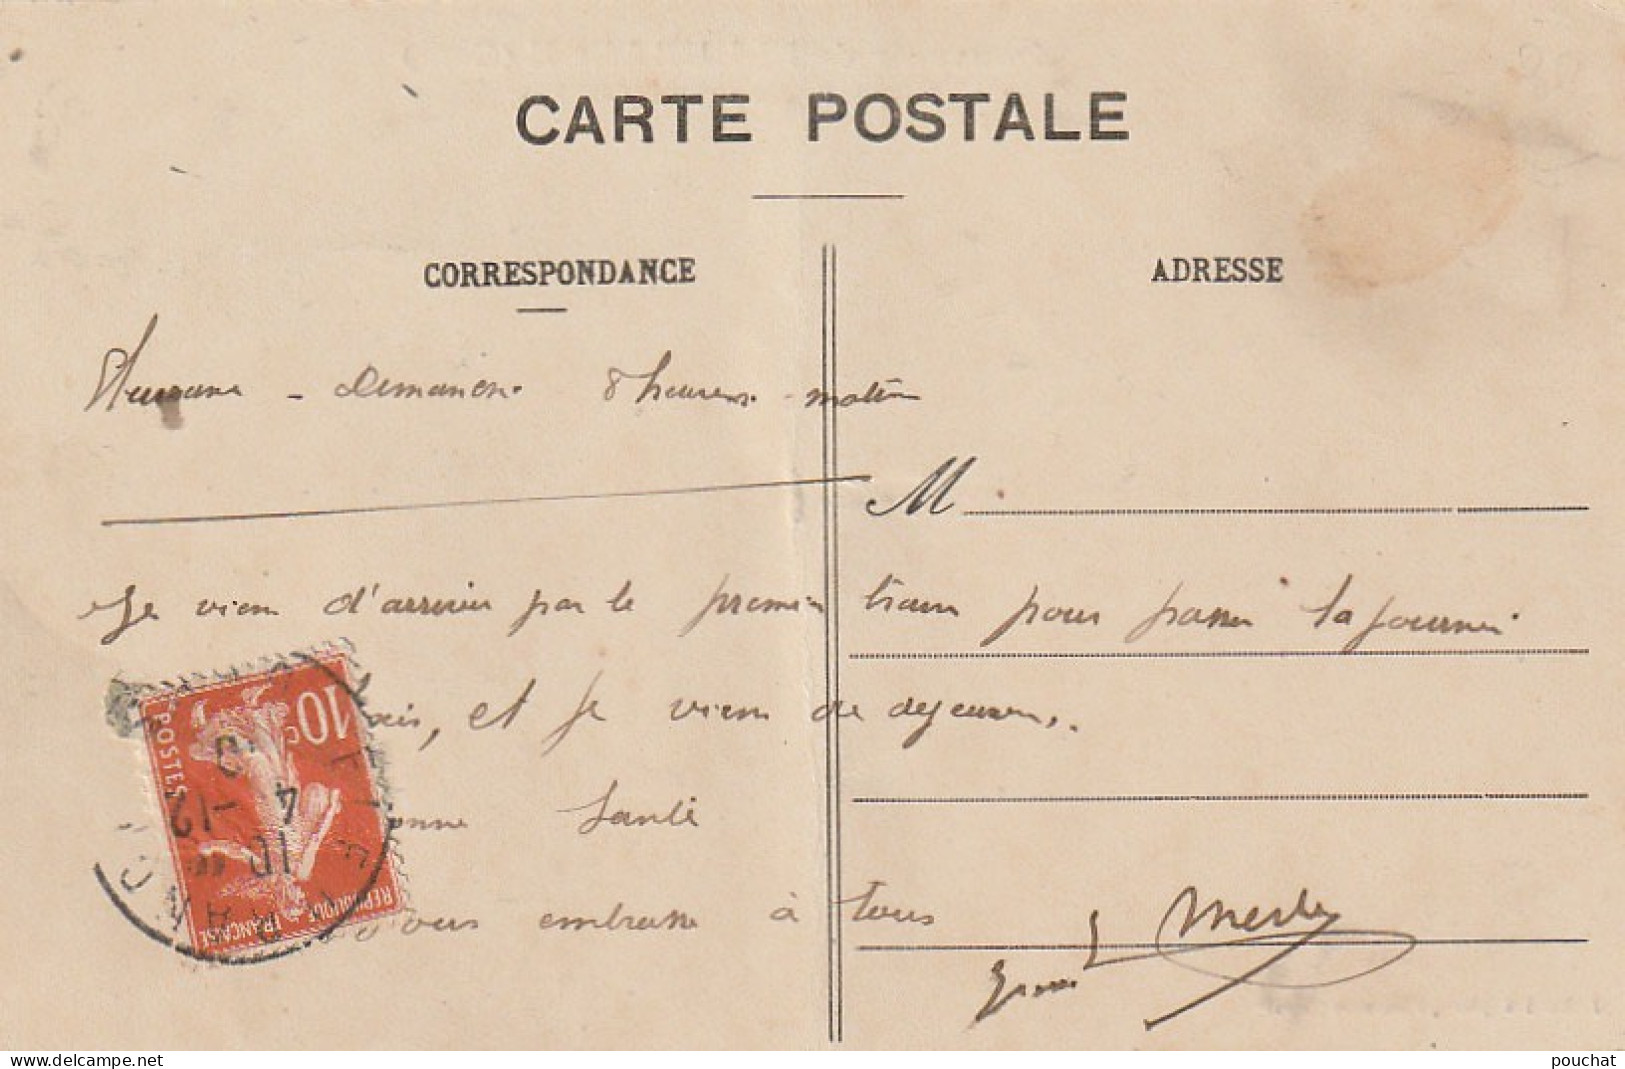 CARTE POSTALE
CORRESPONDANCE
ADRESSE
Demanche 8 heures matin
M
Je vien d'arriver par le premier train pour passer la journée
ais, et je vien de dejeuner.
onne Santé
vous embrasse à tous
Merle
10c
POSTES
REPUBLIQUE
FRANÇAISE
4
-12
pouchat